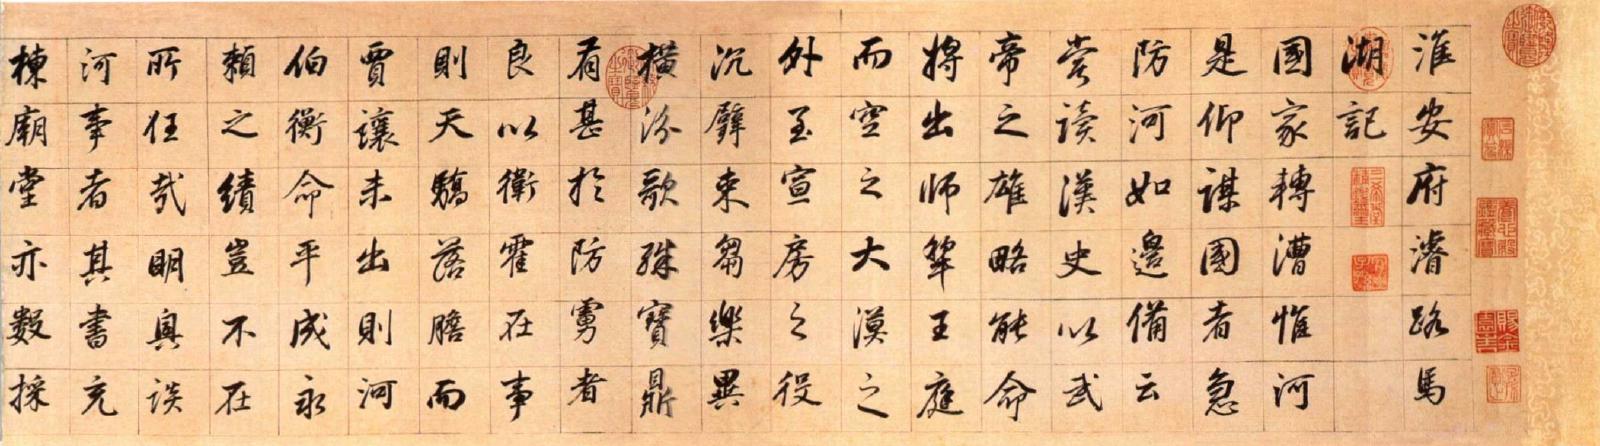 淮安府濬路馬
湖記
國家轉漕惟河
是仰謀國者急
防河如邊備云
嘗讀漢史以武
帝之雄略能命
將出師犂王庭
而空之大漠之
外至宣房之役
沉璧束芻樂異
橫汾歌殊寶鼎
有甚於防虜者
良以衛霍在事
則天驕落膽而
賈讓未出則河
伯衡命平成永
賴之績豈不在
所任哉明興談
河事者其書充
棟廟堂亦數採